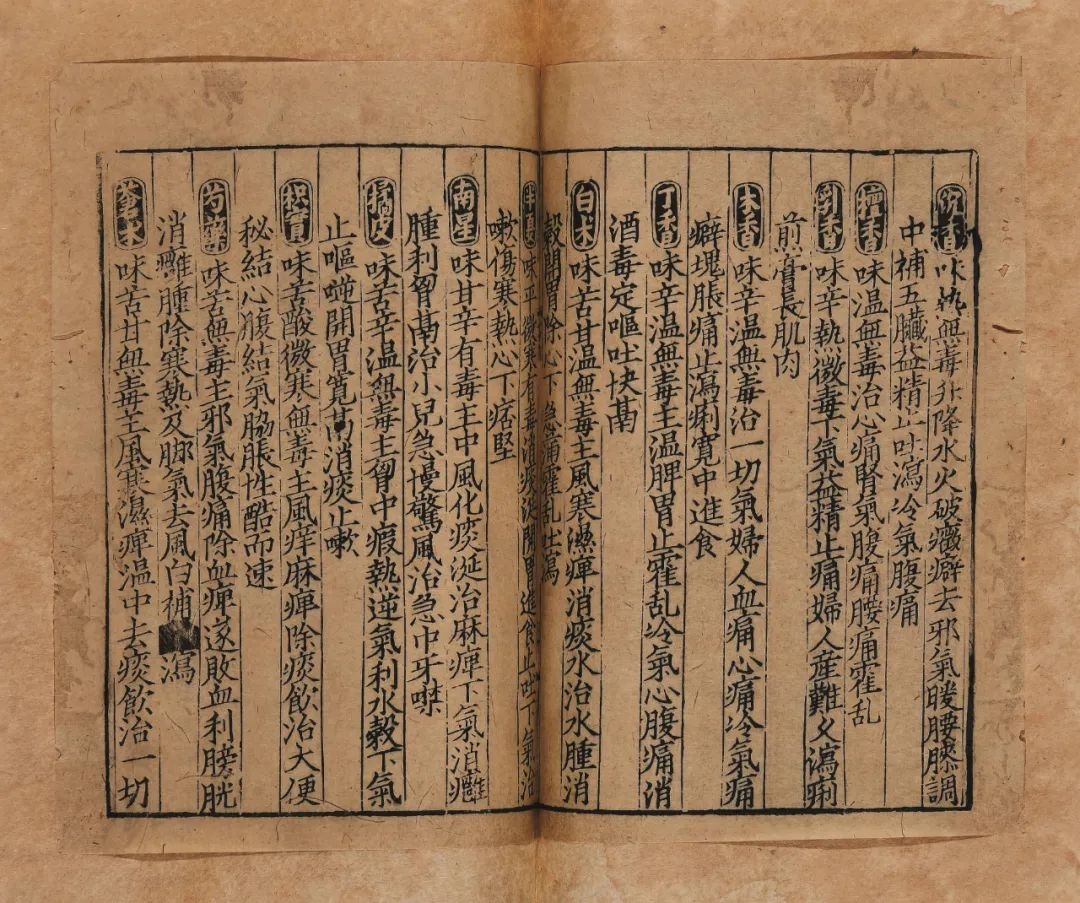 沉香味熱無毒升降水火破癥癖去邪氣暖腰膝調
中補五臟益精止吐瀉冷氣腹痛
檀香味温無毒治心痛腎氣腹痛腰痛霍乱
乳香味辛熱微毒下氣益精止痛婦人産難又瀉痢
前膏長肌肉
木香味辛温無毒治一切氣婦人血痛心痛冷氣痛
癖塊脹痛止瀉痢寛中進食
丁香味辛温無毒主温脾胃止霍乱冷氣心腹痛消
酒毒定嘔吐快膈
白术味苦甘温無毒主風寒濕痺消痰水治水腫消
穀開胃除心下急痛霍乱吐瀉
半夏味平微寒有毒消痰涎開胃進食止吐下氣治
嗽傷寒熱心下痞堅
南星味甘辛有毒主中風化痰涎治麻痺下氣消癰
腫利胷膈治小兒急慢驚風治急中牙噤
橘皮味苦辛温無毒主胷中瘕熱逆氣利水穀下氣
止嘔噦開胃寛膈消痰止嗽
枳實味苦酸微寒無毒主風痒麻痺除痰飲治大便
秘結心腹結氣脇脹性酷而速
芍藥味苦無毒主邪氣腹痛除血痺遂敗血利膀胱
消癰腫除寒熱及脚氣去風白補瀉
蒼术味苦甘無毒主風寒濕痺温中去痰飲治一切